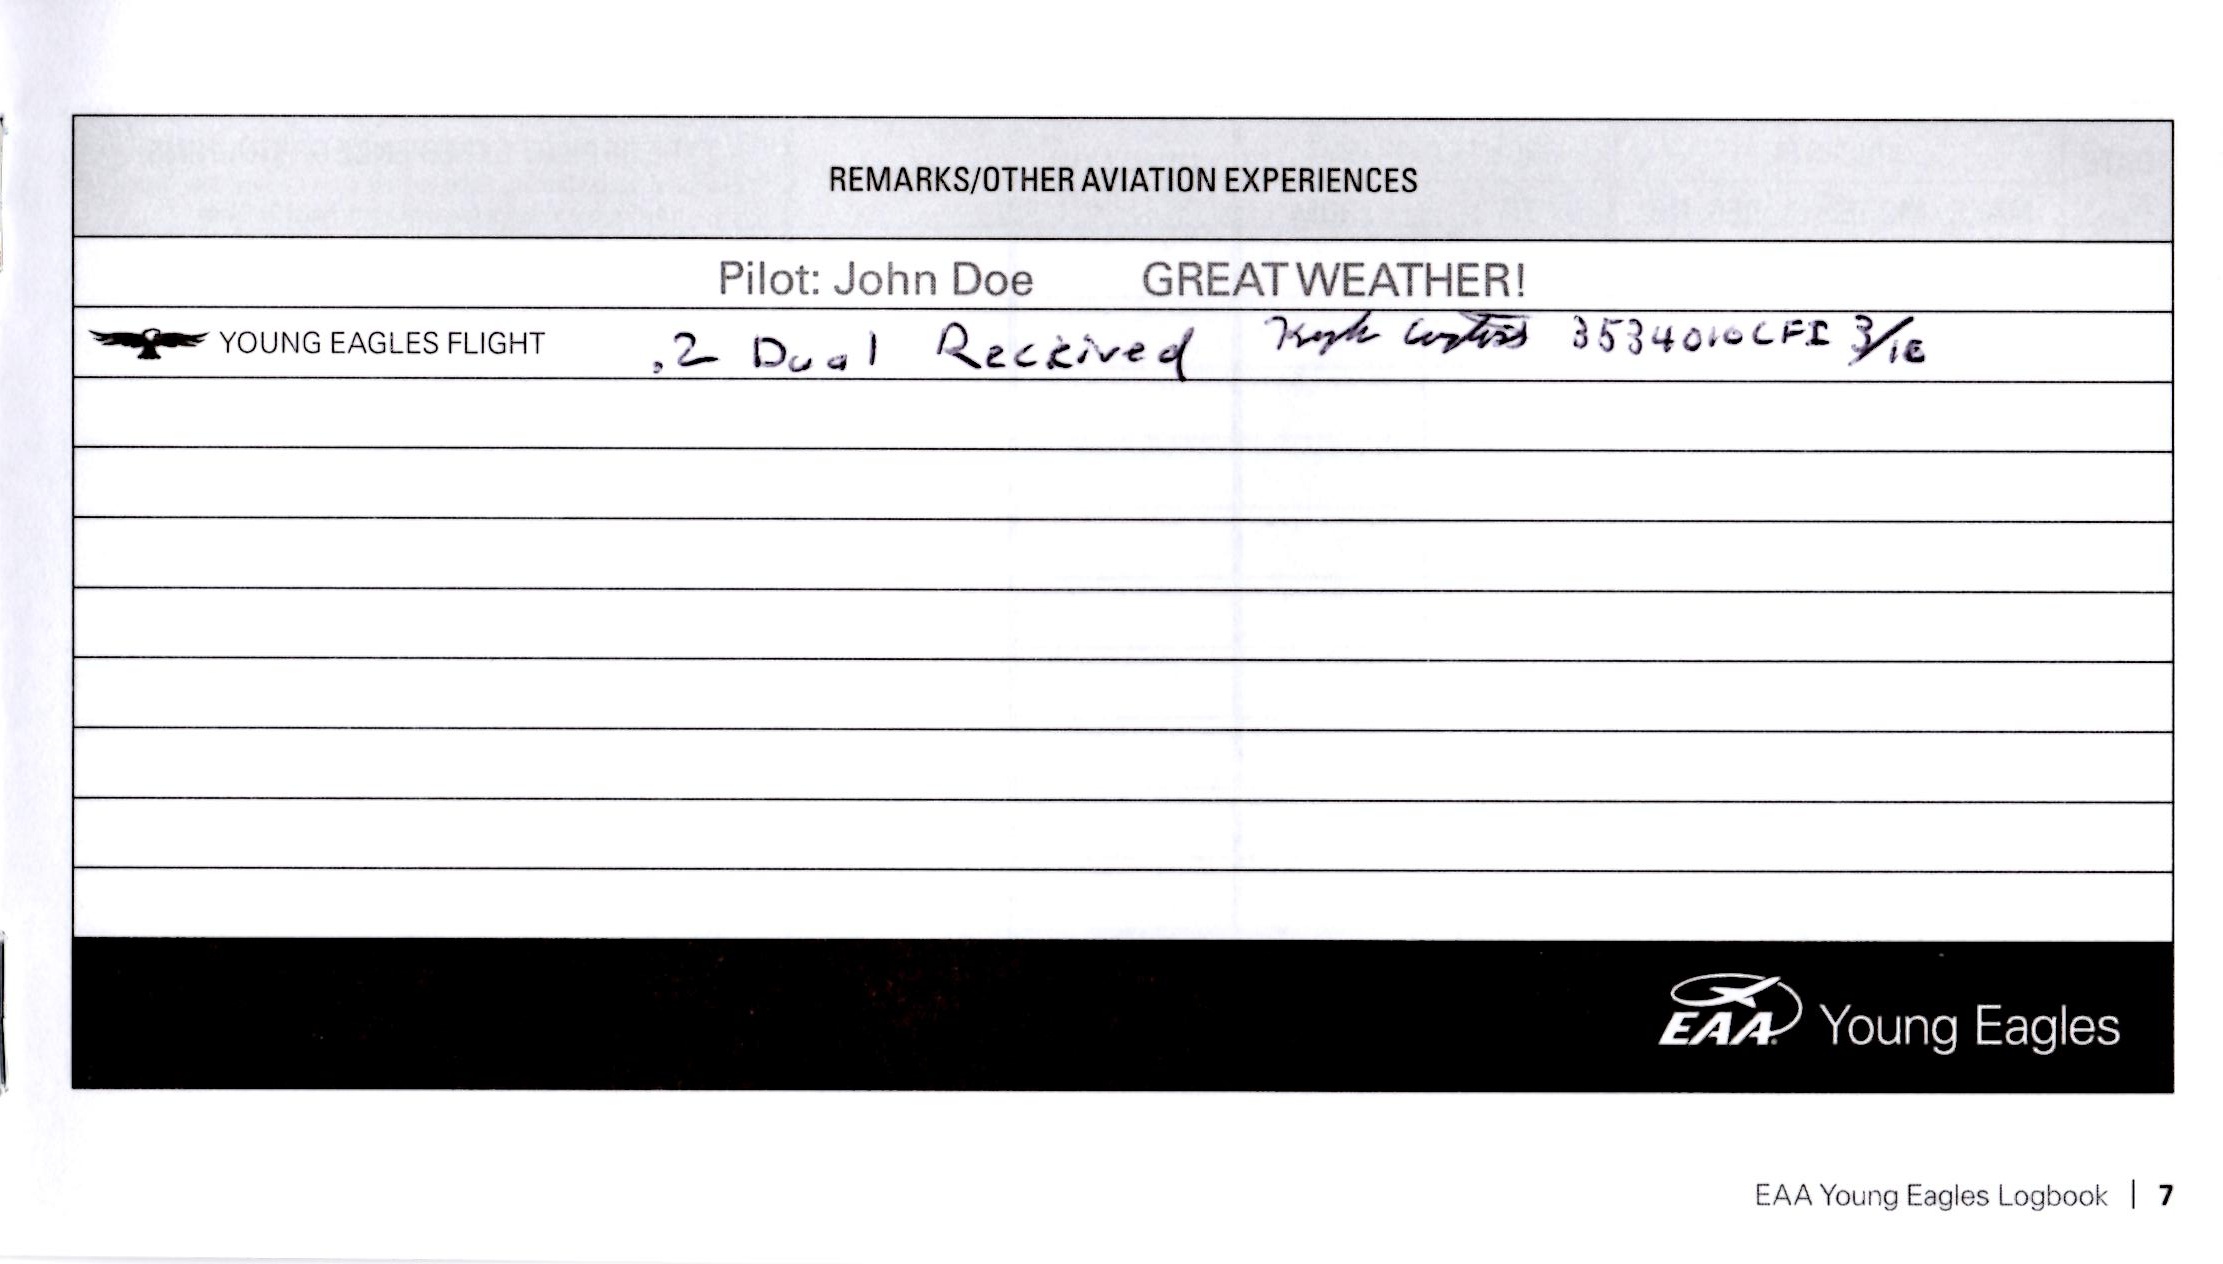 REMARKS/OTHER AVIATION EXPERIENCES
Pilot: John Doe GREAT WEATHER!
YOUNG EAGLES FLIGHT .2 Dual Received 3534010CFI 3/16
EAA Young Eagles
EAA Young Eagles Logbook | 7